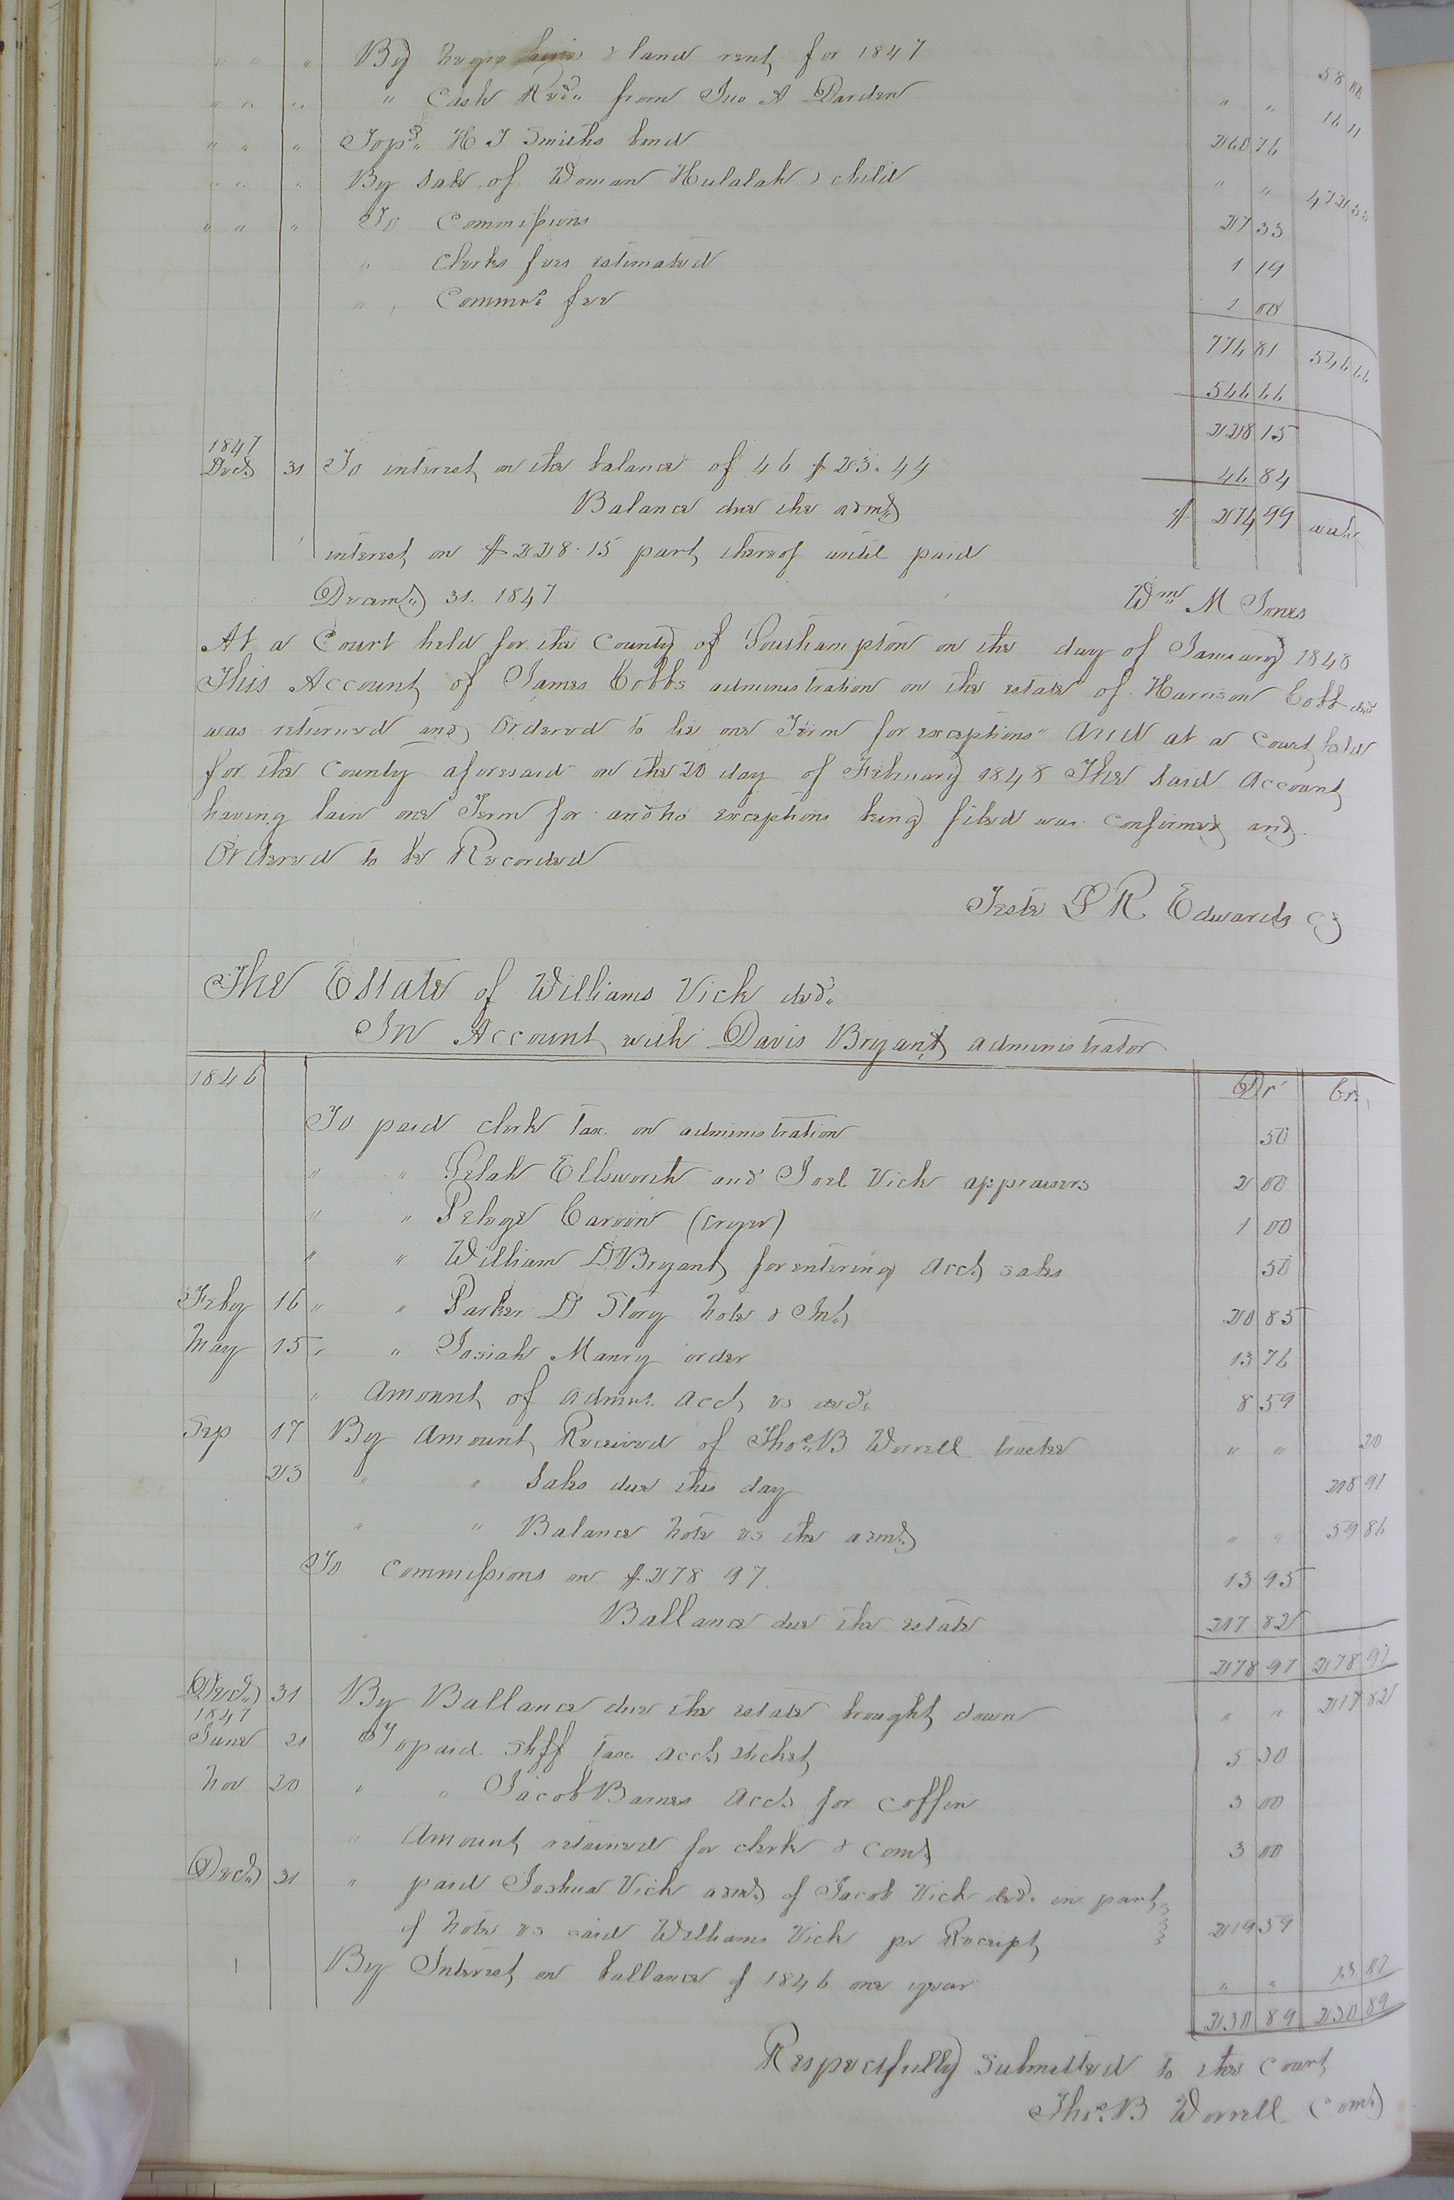 " " " By Negro hires & land rent for 1847 58 00
" " " " Cash Recd. from Jno A Darden " " 16 11
" " " To pd. H J Smiths bond 260 76
" " " By Sale of Woman Hulalah & child " " 472 55
" " " To Commissions 27 33
" Clerks fees estimated 1 19
" Commrs fee 1 00
774 81 546 66
546 66
228 15
1847
Decr 31 To interest on the balance of 46 $ 23.44 46 84
Balance due the admr $ 274 99 with
interest on $228.15 part thereof until paid
Decemr 31. 1847 Wm M Jones
At a Court held for the County of Southampton on the day of January 1848
This Account of James Cobbs administration on the estate of Harrison Cobb decd
was returned and Ordered to lie one Term for exceptions" And at a Court held
for the County aforesaid on the 20 day of February 1848 The Said Account
having lain one Term for and no exceptions being filed was confirmed and
Ordered to be Recorded
Teste L R Edwards C
The Estate of Williams Vick decd.
In Account with Davis Bryant administrator
1846 Dr Cr.
To paid clerk Tax on administration 50
" " Selah Ellsworth and Joel Vick appraisers 2 00
" " Pelege Carvin (cryer) 1 00
" " William D Bryant for entering acct sales 50
Feby 16 " " Parker D Story note & Int. 20 85
May 15 " " Josiah Manry order 13 76
" Amount of admrs. acct vs decd. 8 59
Sep 17 By Amount Received of Thos. B Worrell trustee " " 20
23 " " Sales due this day 218 91
" " Balance note vs the admr " " 59 86
To Commissions on $278 97 13 95
Ballance due the estate 217 82
278 97 278 97
Decr. 31 By Ballance due the estate brought down " " 217 82
1847
June 21 To paid Shff tax acct ticket 5 30
Nov 20 " " Jacob Barnes acct for coffin 3 00
" Amount retained for clerk & comr 3 00
Decr. 31 " paid Joshua Vick admr of Jacob Vick decd. in part
of note vs said Williams Vick pr Receipt 219 59
By Interest on ballance of 1846 one year " " 13 07
230 89 230 89
Respectfully Submitted to the Court
Thos. B Worrell Comr